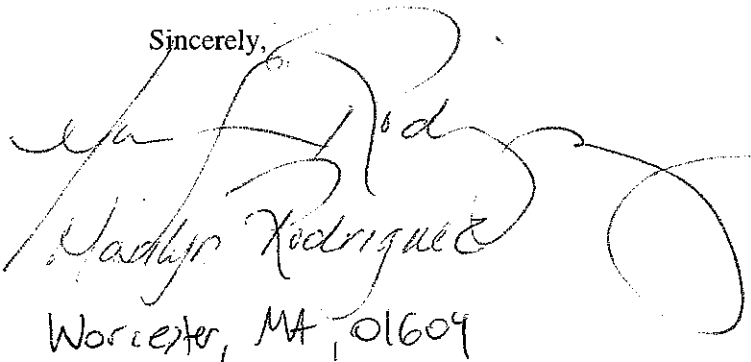 Sincerely,
Madilyn Rodriguez
Worcester, MA, 01604